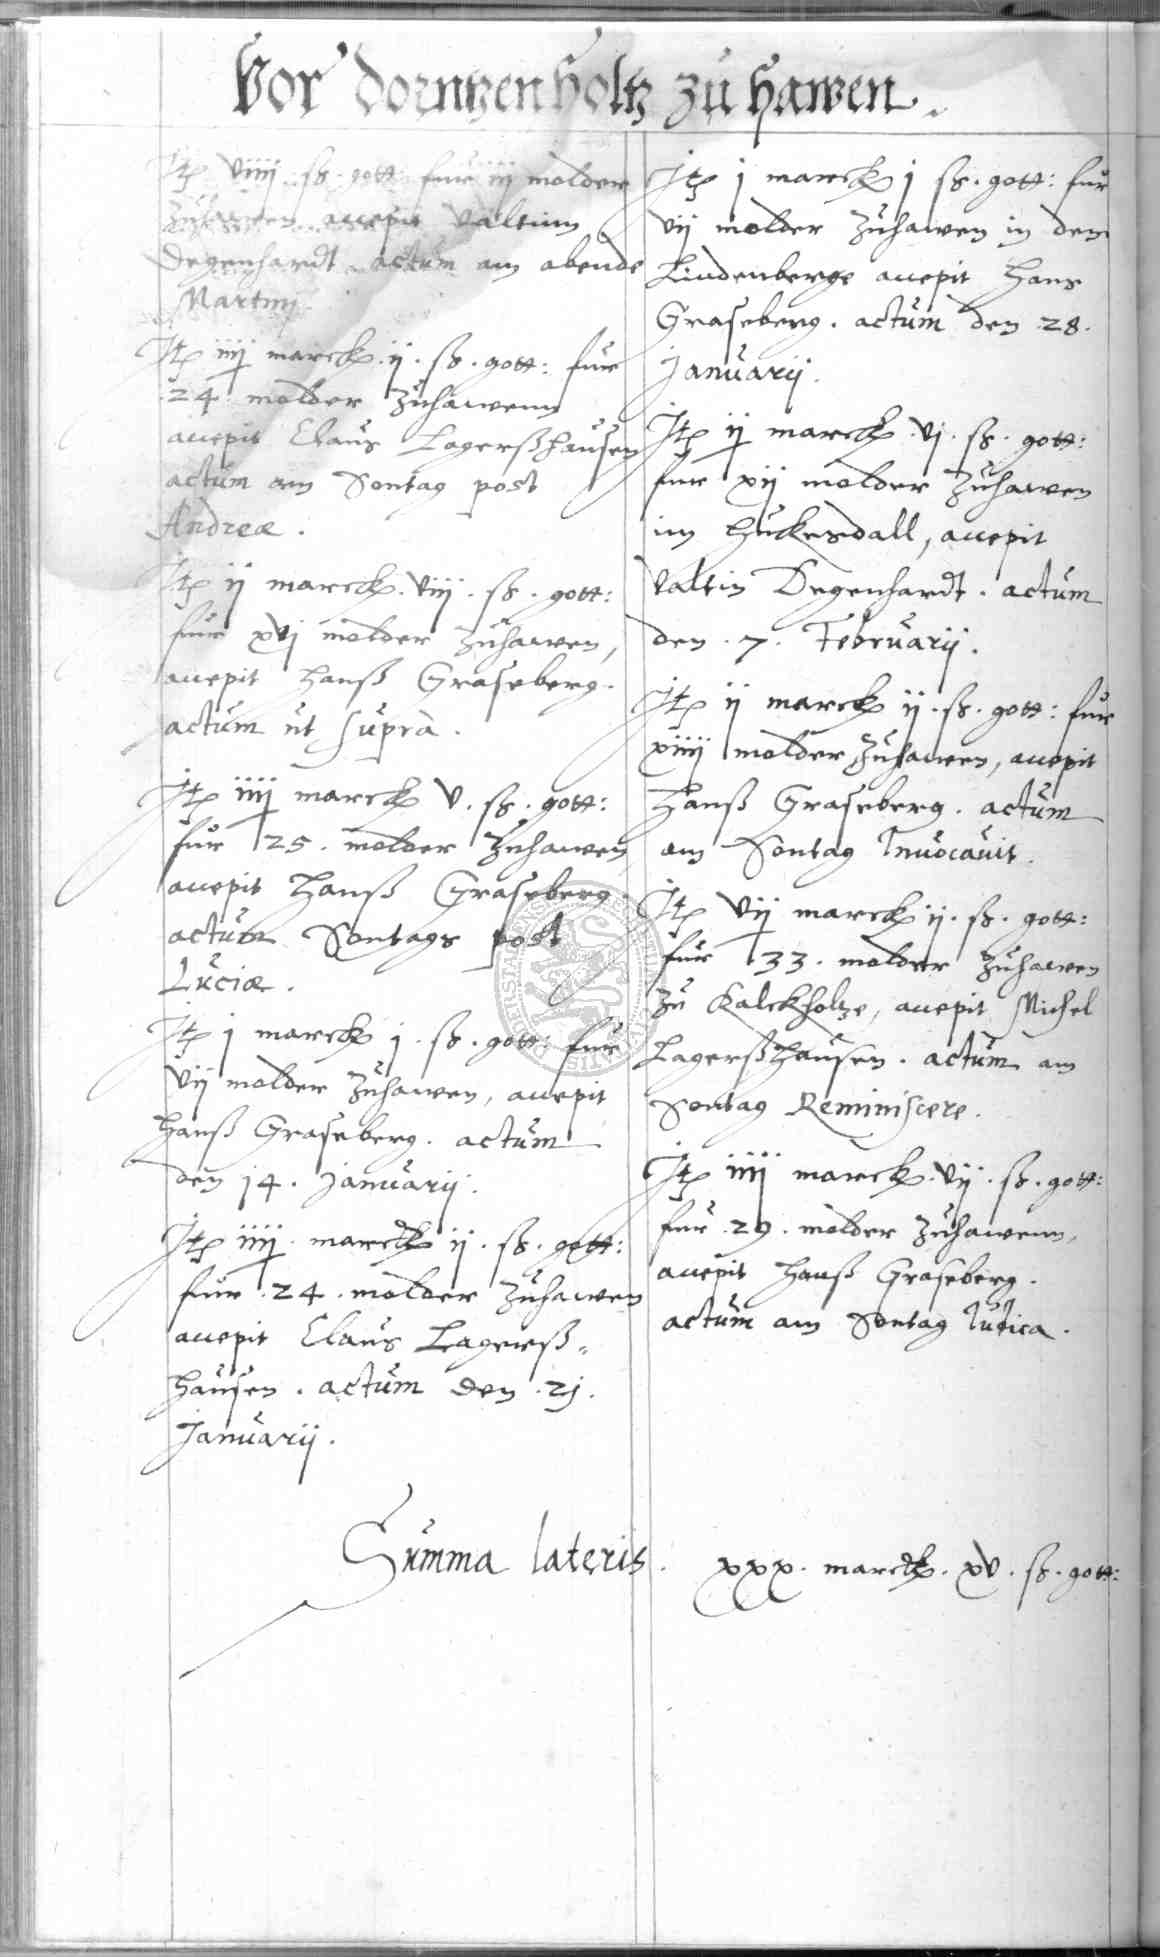 Vor dorntzenholtz zu hawen.
Itp viiij ß. gott: fur iij molder
zuhawen accepit Valtinn
Degenhardt. actum am abende
Martinj.
Itp iiij marck. ij. ß. gott: fur
24 molder zuhawenn
accepit Claus Lagerßhausen
actum am Sontag post
Andreæ.
Itp ij marck. viij. ß. gott:
fur xvj molder zuhawen,
accepit Hanß Graseberg.
actum ut supra.
Itp iiij marck v. ß. gott:
fur 25. molder zuhawen
accepit Hanß Graseberg
actum Sontags post
Luciæ.
Itp j marck j. ß. gott: fur
vij molder zuhawen, accepit
Hanß Graseberg. actum
den 14. Januarij.
Itp iiij. marck ij. ß. gott:
fur. 24. molder zuhawen
accepit Claus Lagerß-
hausen. actum den. 21.
Januarij.
Itp j marck j ß. gott: fur
vij molder zuhawen in dem
Lindenberge accepit Hans
Graseberg. actum den 28.
Januarij.
Itp ij marck. vj. ß. gott:
fur xij molder zuhawen
im Huckesdall, accepit
Valtin Degenhardt. actum
den. 7. Februarij.
Itp ij marck ij. ß. gott: fur
xiiij molder zuhawen, accepit
Hanß Graseberg. actum
am Sontag Invocavit.
Itp vij marck ij. ß. gott:
fur 33. molder zuhawen
zu Kalckholtze, accepit Michel
Lagerßhausen. actum am
Sontag Reminiscere.
Itp iiij marck. vij. ß. gott:
fur. 29. molder zuhawenn,
accepit Hanß Graseberg.
actum am Sontag Judica.
Summa lateris. xxx. marck. xv. ß. gott: